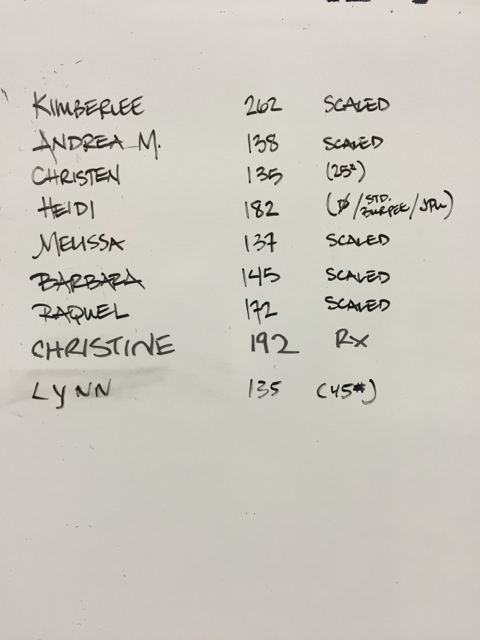 KIMBERLEE 262 SCALED
ANDREA M. 138 SCALED
CHRISTEN 135 (25#)
HEIDI 182 (Ø/STD. BURPEE/JPU)
MELISSA 137 SCALED
BARBARA 145 SCALED
RAQUEL 172 SCALED
CHRISTINE 192 RX
LYNN 135 (45#)